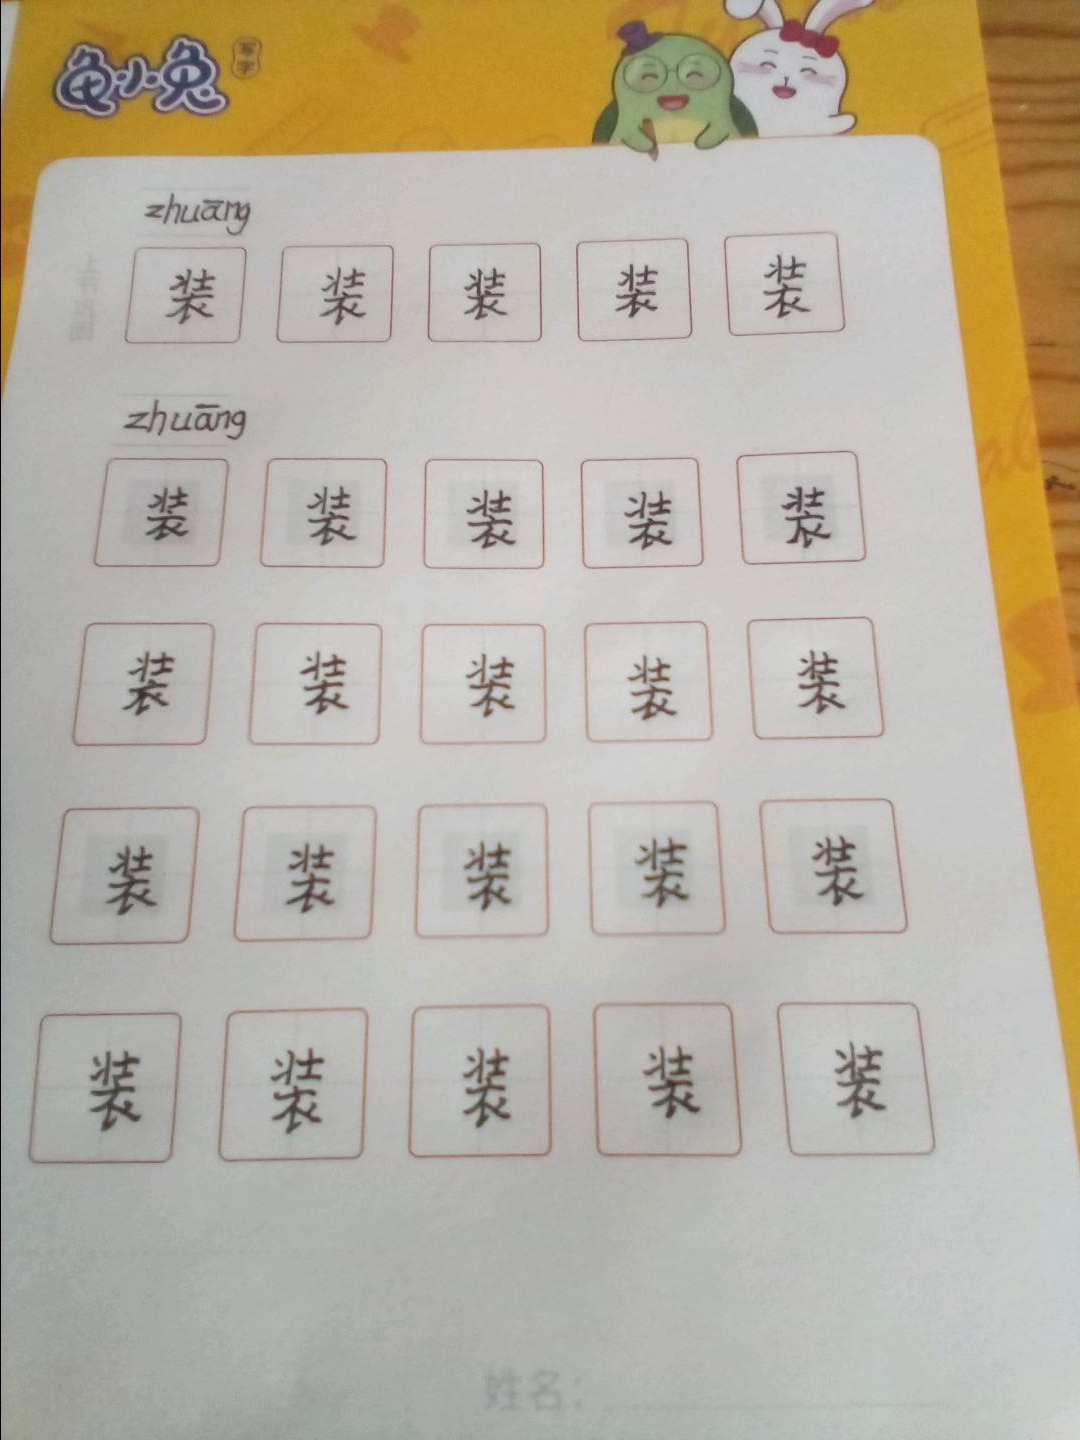 龟小兔 写字
zhuāng
装 装 装 装 装
zhuāng
装 装 装 装 装
装 装 装 装 装
装 装 装 装 装
装 装 装 装 装
姓名：